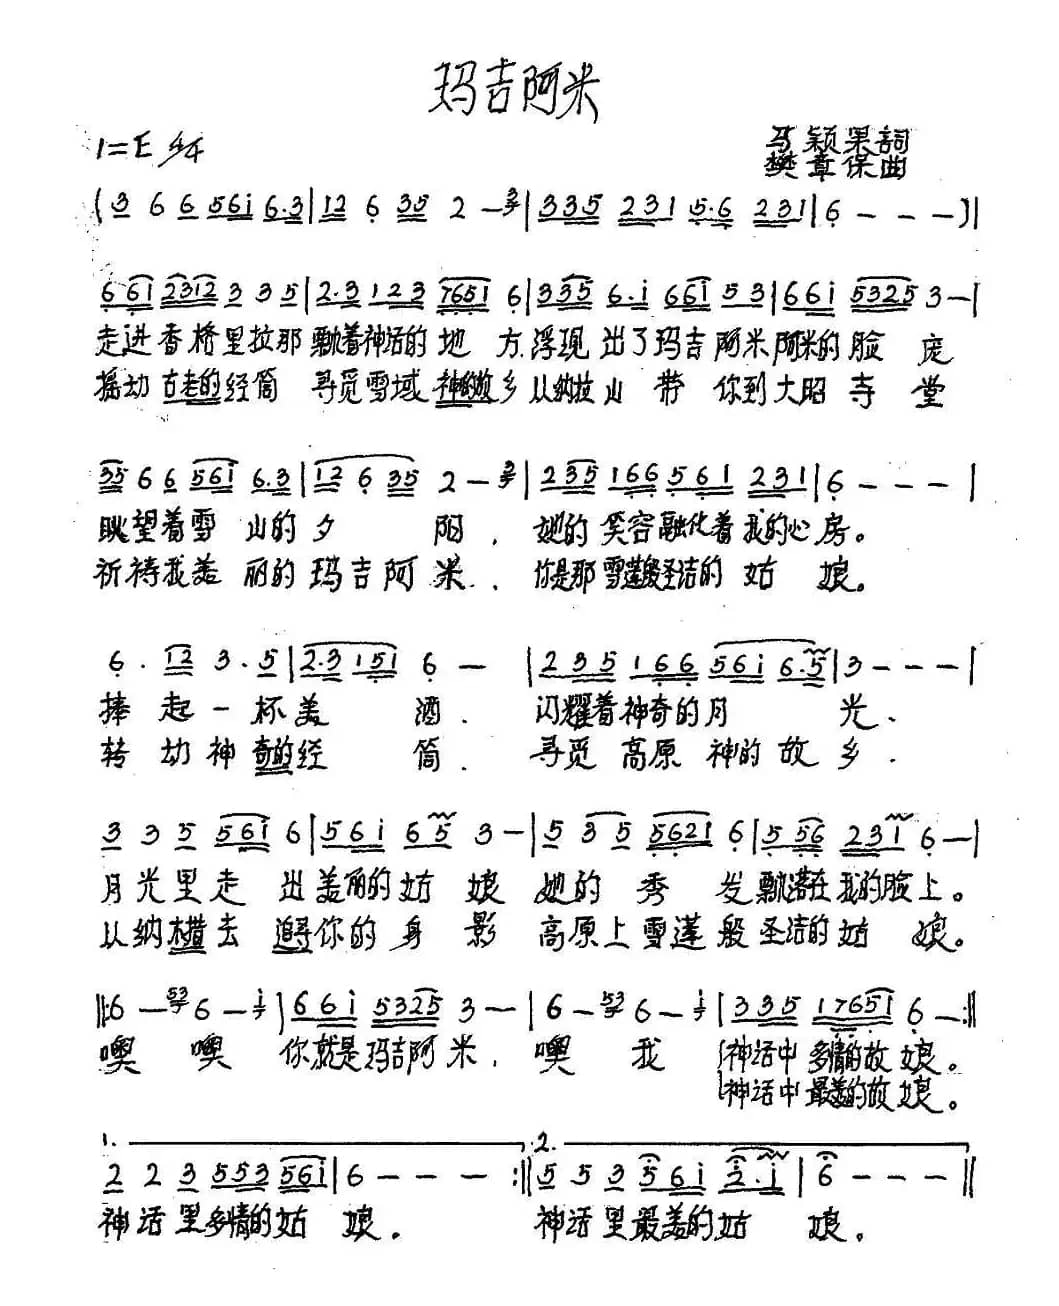 玛吉阿米
1=E 4/4
马颖果詞
樊章保曲
(3 6 6 561 6.3|12 6 35 2 — 3|335 231 5.6 231|6 — — —)|
661 2312 3 3 5|2.3 123 7651 6|335 6.1 661 53|661 5325 3—|
走进香格里拉那飘着神话的地方.浮现出了玛吉阿米阿米的脸庞
摇动古老的经筒 寻觅雪域神的故乡从纳拉山带你到大昭寺堂
35 6 6 561 6.3|12 6 35 2— 3|235 166 561 231|6 — — —|
眺望着雪山的夕阳. 她的笑容融化着我的心房。
祈祷我美丽的玛吉阿米. 你是那雪莲般圣洁的姑娘。
6. 12 3.5|2.3 151 6 —|235 166 561 6.5|3 — — —|
捧起一杯美酒. 闪耀着神奇的月光.
转动神奇的经筒. 寻觅高原神的故乡.
3 3 5 561 6|561 65 3—|5 35 5621 6|556 231 6—|
月光里走出美丽的姑娘她的秀发飘落在我的脸上。
从纳木措去追寻你的身影高原上雪莲般圣洁的姑娘。
‖:6 — 53 6 — 1|661 5325 3—|6 — 53 6 — 1|335 17651 6—:‖
噢噢你就是玛吉阿米. 噢我神话中多情的故娘。
神话中最美的故娘。
1. 2.
2 2 3 553 561|6 — — — :‖5 5 3 561 2.1|6 — — —‖
神话里多情的姑娘。 神话里最美的姑娘。